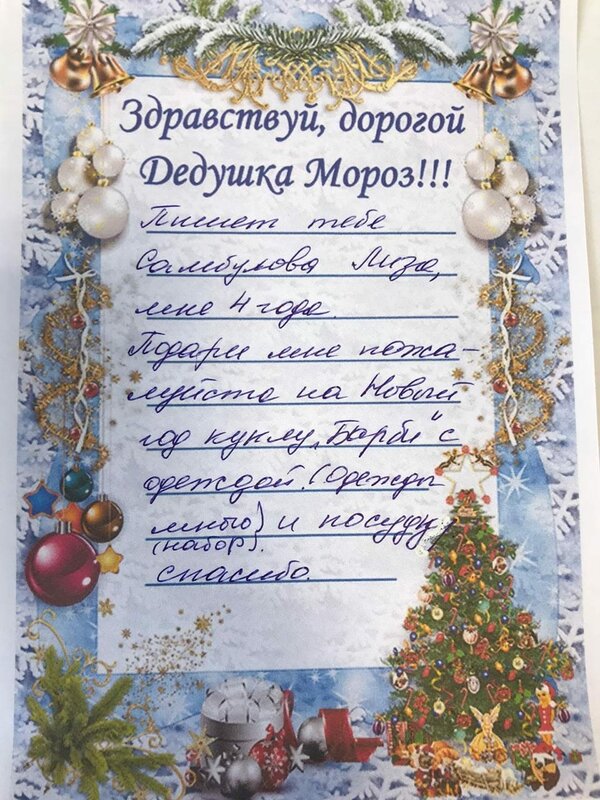 Здравствуй, дорогой
Дедушка Мороз!!!
Пишет тебе
Самбулова Лиза,
мне 4 года.
Подари мне пожа-
луйста на Новый
год куклу „Барби" с
одеждой. (Одежды
много) и посуду
(набор).
спасибо.